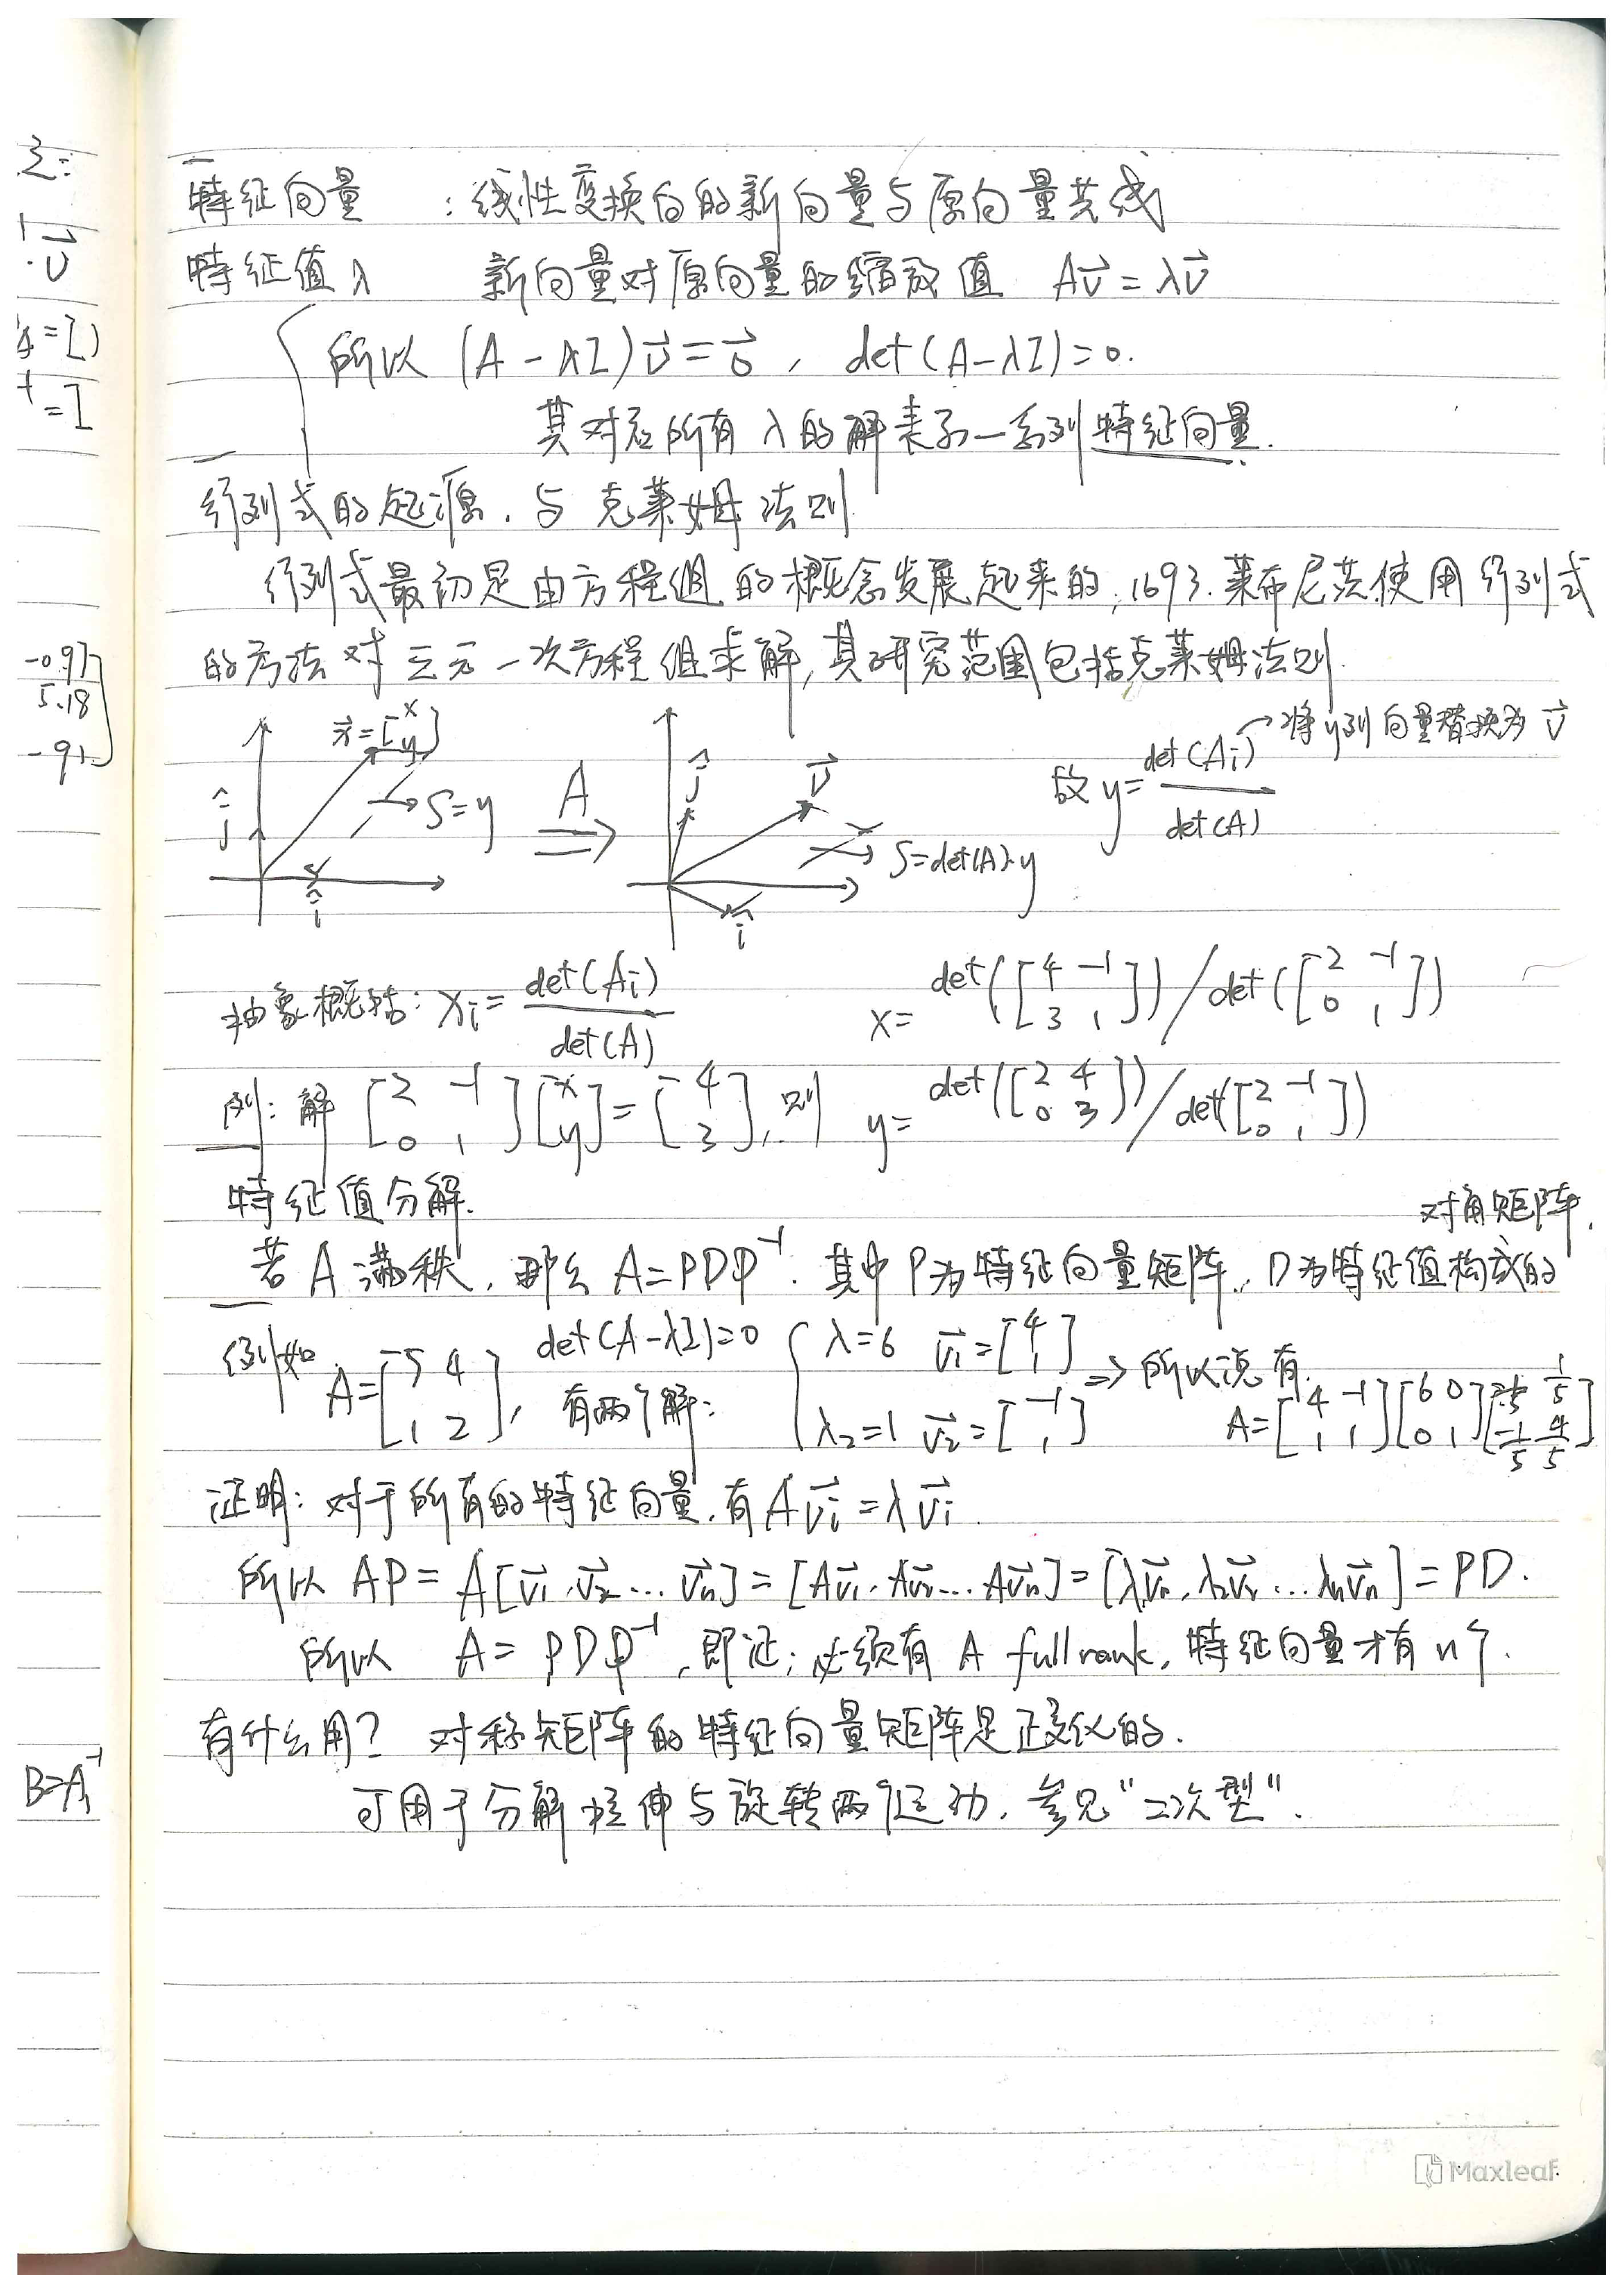 特征向量 : 线性变换后的新向量与原向量共线
特征值 λ 新向量对原向量的缩放值 Av⃗ = λv⃗
所以 (A - λI)v⃗ = 0⃗, det(A-λI)=0.
其对应所有 λ 的解表示一系列特征向量.
行列式的起源. 与 克莱姆法则
行列式最初是由方程组的概念发展起来的, 1693. 莱布尼茨使用行列式
的方法对三元一次方程组求解, 其研究范围包括克莱姆法则.
x⃗=[x y] S=y ĵ î
A ⇒
ĵ v⃗ î S=det(A)·y
故 y = det(Ai) / det(A) → 将y列向量替换为 v⃗
抽象概括: xi = det(Ai) / det(A)
x = det([4 -1; 3 1]) / det([2 -1; 0 1])
例: 解 [2 -1; 0 1][x; y] = [4; 3], 则 y = det([2 4; 0 3]) / det([2 -1; 0 1])
特征值分解.
若 A 满秩, 那么 A=PDP⁻¹. 其中 P为特征向量矩阵, D为特征值构成的
对角矩阵.
例如 A=[5 4; 1 2], det(A-λI)=0 有两个解: { λ=6 v⃗1=[4; 1] λ2=1 v⃗2=[-1; 1] ⇒ 所以说有
A=[4 -1; 1 1][6 0; 0 1][1/5 1/5; -1/5 4/5]
证明: 对于所有的特征向量, 有 Av⃗i = λv⃗i.
所以 AP = A[v⃗1, v⃗2 ... v⃗n] = [Av⃗1, Av⃗2 ... Av⃗n] = [λv⃗n, λ2v⃗2 ... λnv⃗n] = PD.
所以 A = PDP⁻¹, 即证; 必须有 A full rank, 特征向量才有 n个.
有什么用? 对称矩阵的特征向量矩阵是正交化的.
可用于分解拉伸与旋转两个运动. 参见"二次型".
v⃗
-0.97
5.18
-91
B=A⁻¹
Maxleaf